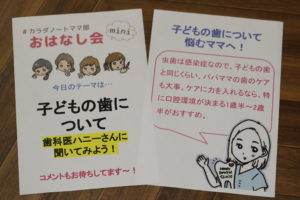 #カラダノートママ部
おはなし会
mini
今日のテーマは…
子どもの歯に
ついて
歯科医ハニーさんに
聞いてみよう!
コメントもお待ちしてます〜!
子どもの歯について
悩むママへ!
虫歯は感染症なので、子どもの歯
と同じくらい、パパママの歯のケア
も大事。ケアに力を入れるなら、特
に口腔環境が決まる1歳半〜2歳
半がおすすめ。